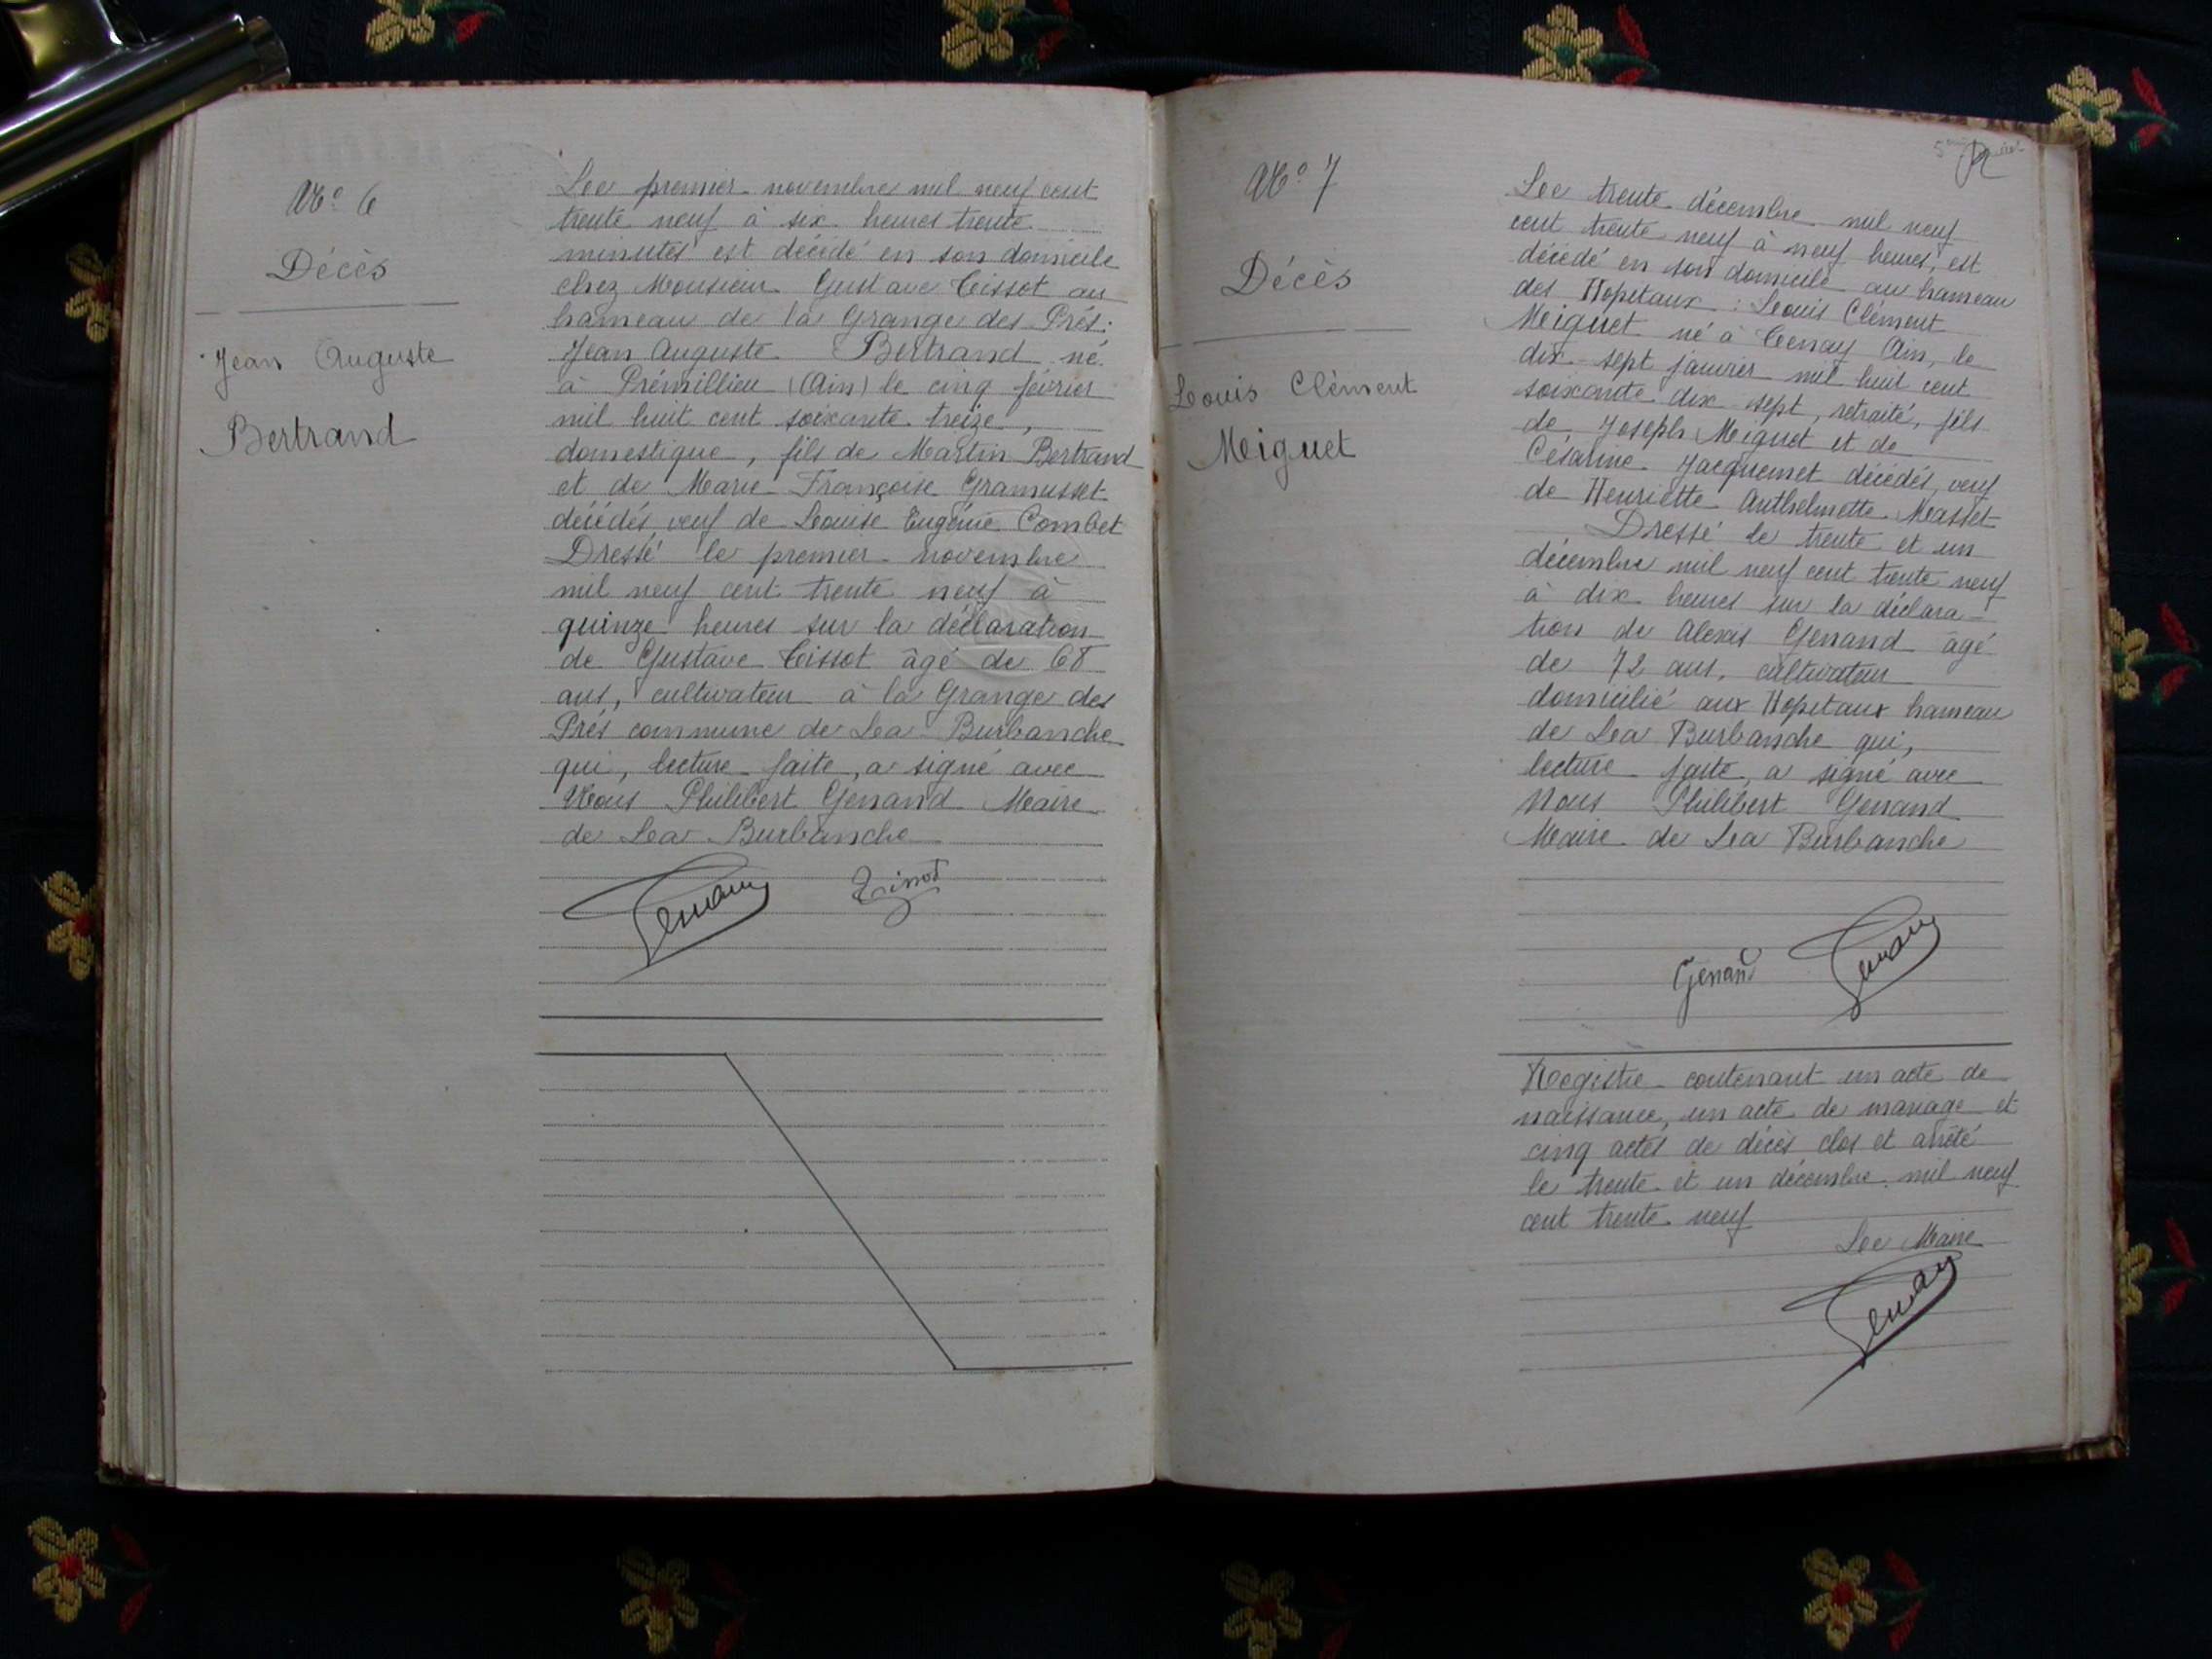 N° 6
Décès
Jean Auguste
Bertrand
Le premier novembre mil neuf cent
trente neuf à six heures trente
minutes est décédé en son domicile
chez Monsieur Gustave Tissot au
hameau de la Grange des Prés :
Jean Auguste Bertrand né
à Prémillieu (Ain) le cinq février
mil huit cent soixante treize,
domestique, fils de Martin Bertrand
et de Marie Françoise Gramusset
décédés, veuf de Louise Eugénie Combet
Dressé le premier novembre
mil neuf cent trente neuf à
quinze heures sur la déclaration
de Gustave Tissot âgé de 68
ans, cultivateur à la Grange des
Prés commune de La Burbanche
qui, lecture faite, a signé avec
Nous Philibert Genand Maire
de La Burbanche
Genand Tissot
N° 7
Décès
Louis Clément
Meiguet
Le trente décembre mil neuf
cent trente neuf à neuf heures, est
décédé en son domicile au hameau
des Hopitaux : Louis Clément
Meiguet né à Tenay Ain, le
dix sept janvier mil huit cent
soixante dix sept, retraité, fils
de Joseph Meiguet et de
Césarine Jacquemet décédés, veuf
de Henriette Anthelmette Masset
Dressé le trente et un
décembre mil neuf cent trente neuf
à dix heures sur la déclara-
tion de Alexis Genand âgé
de 72 ans, cultivateur
domicilié aux Hopitaux hameau
de La Burbanche qui,
lecture faite, a signé avec
Nous Philibert Genand
Maire de La Burbanche
Genand Genand
Registre contenant un acte de
naissance, un acte de mariage et
cinq actes de décès clos et arrêté
le trente et un décembre mil neuf
cent trente neuf
Le Maire
Genand